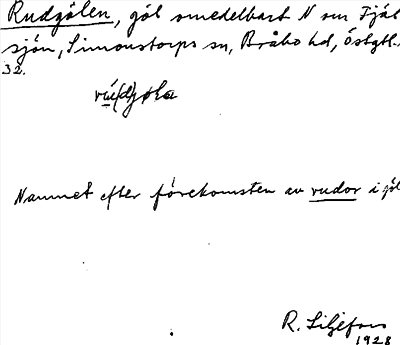 Rudgölen, göl omedelbart N om Fjäl
sjön, Simonstorps sn, Bråbo hd, Östgtl.
32.
Namnet efter förekomsten av rudor i göl
R. Liljefors
1928